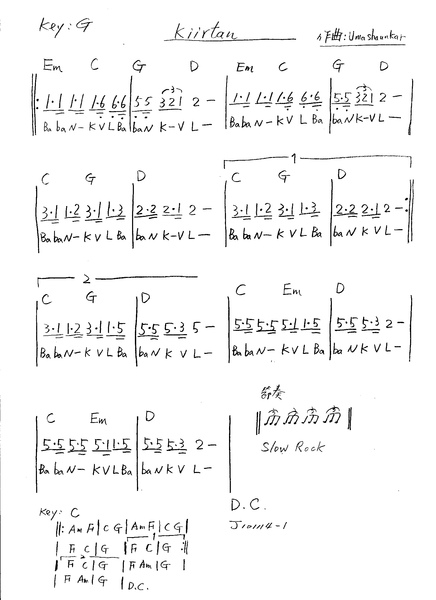 Key: G Kiirtan 作曲: Umashankar
Em C G D Em C G D
‖: 1·1 1·1 1·6 6·6 | 5·5 321 2 – | 1·1 1·1 1·6 6·6 | 5·5 321 2 – |
Ba ba N – K V L Ba ba N K – V L – Ba ba N – K V L Ba ba N K – V L –
1
C G D C G D
| 3·1 1·2 3·1 1·3 | 2·2 2·1 2 – | 3·1 1·2 3·1 1·3 | 2·2 2·1 2 – :‖
Ba ba N – K V L Ba ba N K V L – Ba ba N – K V L Ba ba N K V L –
2
C G D C Em D
| 3·1 1·2 3·1 1·5 | 5·5 5·3 5 – | 5·5 5·5 5·1 1·5 | 5·5 5·3 2 – |
Ba ba N – K V L Ba ba N K V L – Ba ba N – K V L Ba ba N K V L –
C Em D
| 5·5 5·5 5·1 1·5 | 5·5 5·3 2 – |
Ba ba N – K V L Ba ba N K V L –
節奏
Slow Rock
D.C.
Key: C
‖: Am F | C G | Am F | C G |
1
| F C | G | F C | G :‖
2
| F C | G | F Am | G |
| F Am | G | D.C.